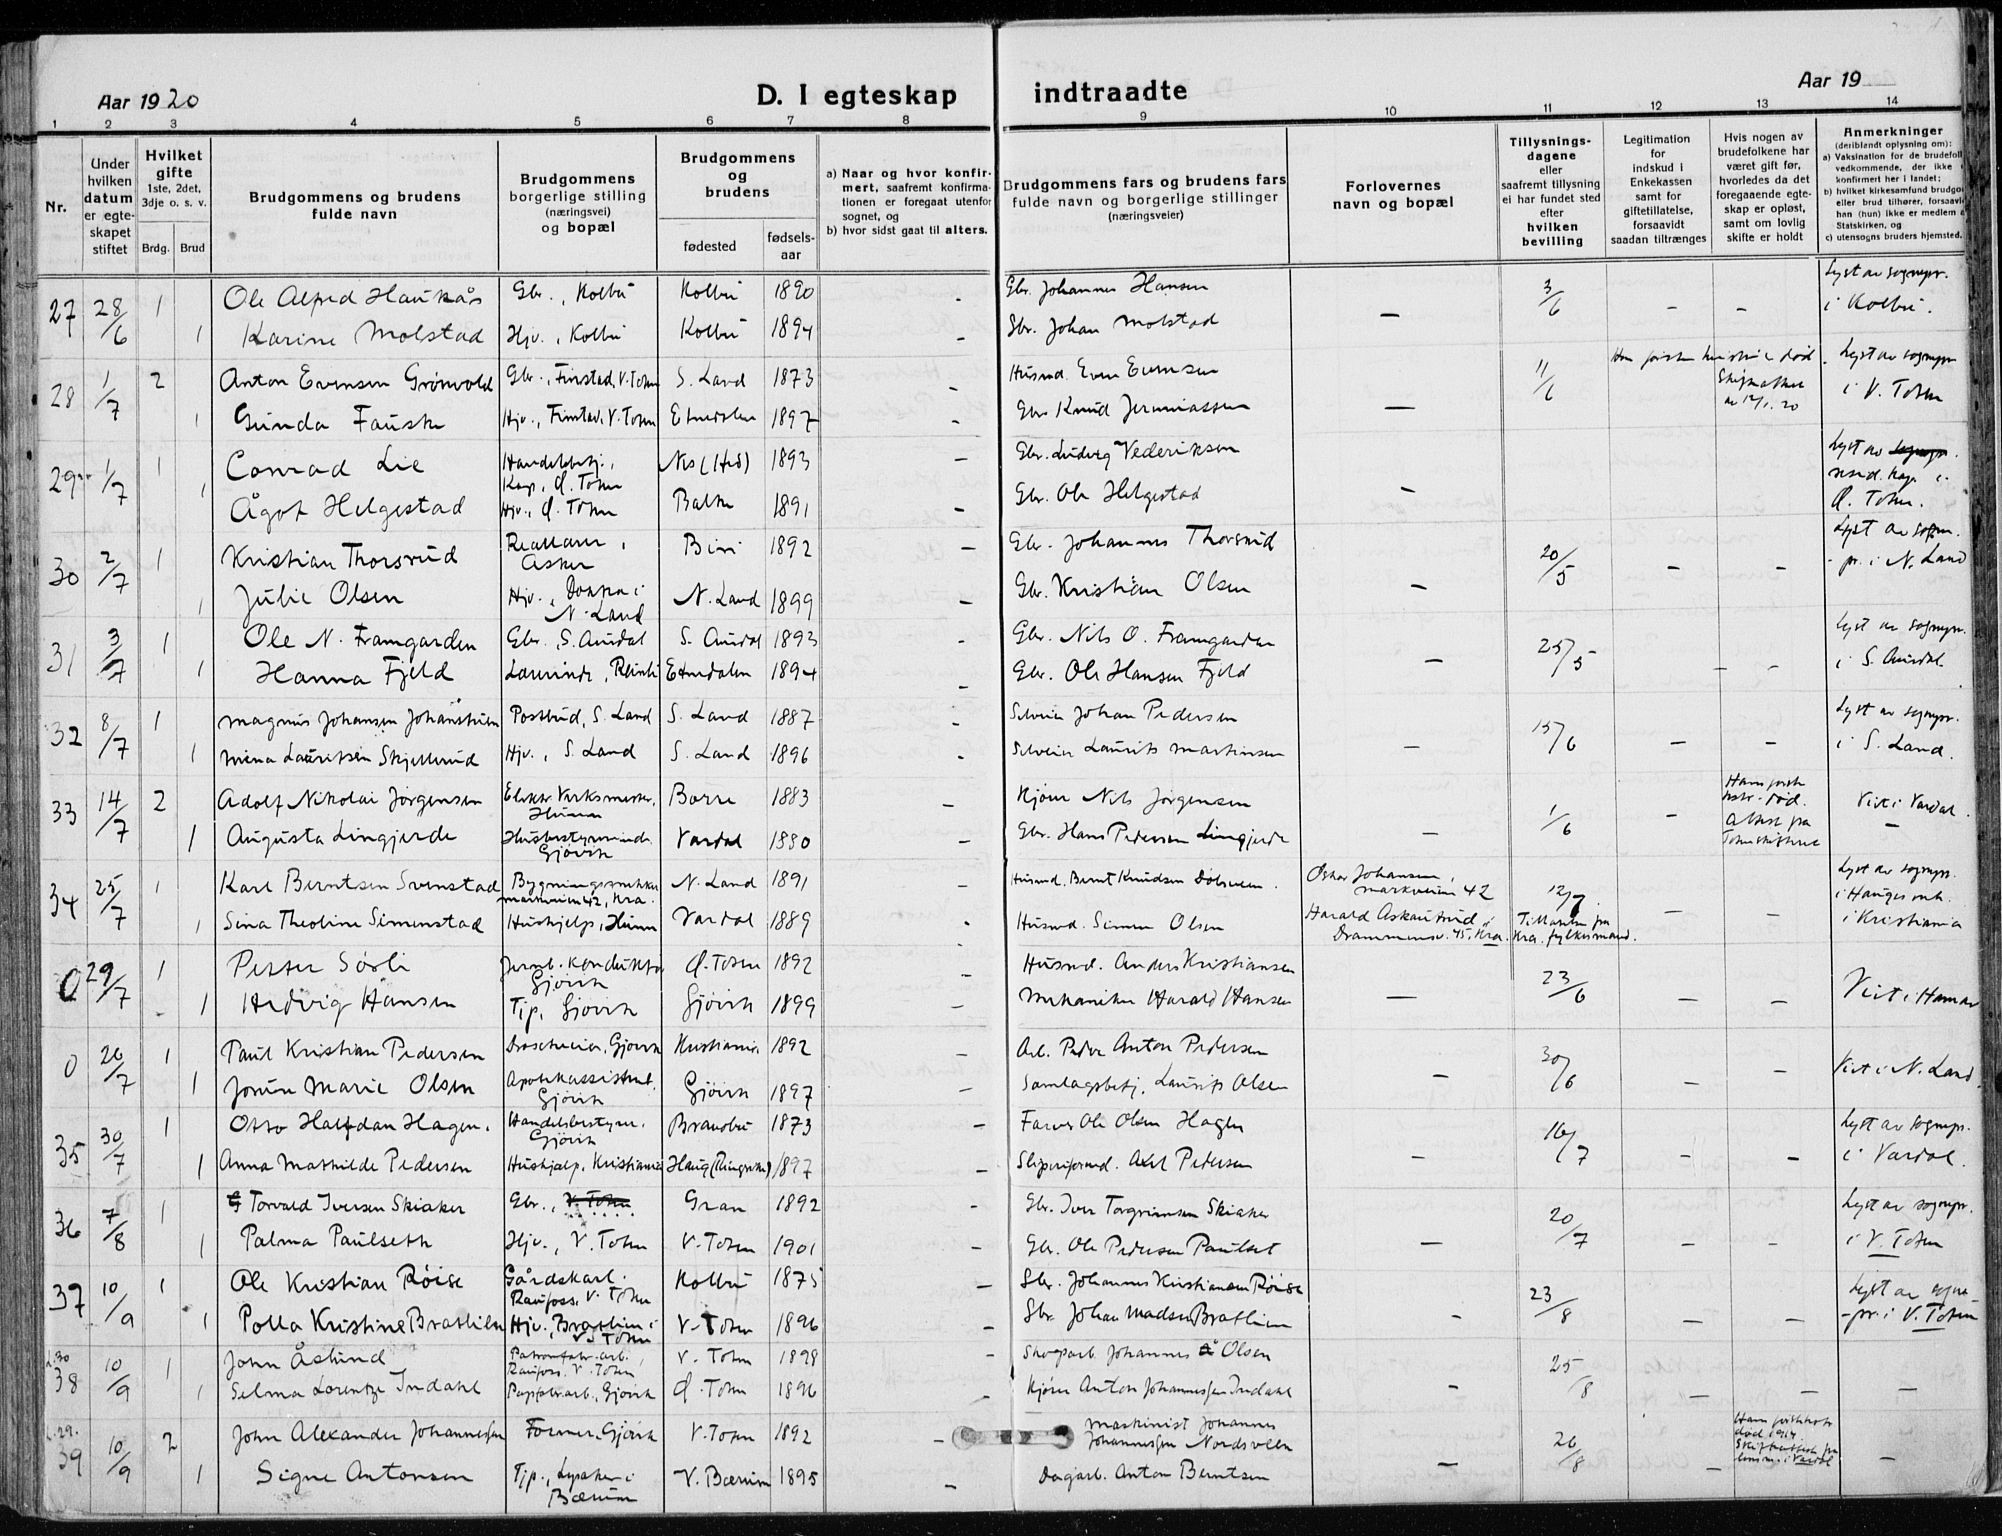 Aar 1920
D. I egteskap indtraadte
Aar 19
1 2 3 4 5 6 7 8 9 10 11 12 13 14
Nr.
Under hvilken datum er egte-skapet stiftet
Hvilket gifte 1ste, 2det, 3dje o. s. v.
Brdg. Brud
Brudgommens og brudens fulde navn
Brudgommens borgerlige stilling (næringsvei) og bopæl
Brudgommens og brudens
fødested
fødsels-aar
a) Naar og hvor konfir-mert, saafremt konfirma-tionen er foregaat utenfor sognet, og
b) hvor sidst gaat til alters.
Brudgommens fars og brudens fars fulde navn og borgerlige stillinger (næringsveier)
Forlovernes navn og bopæl
Tillysnings-dagene eller saafremt tillysning ei har fundet sted efter hvilken bevilling
Legitimation for indskud i Enkekassen samt for giftetillatelse, forsaavidt saadan tiltrænges
Hvis nogen av brudefolkene har været gift før, hvorledes da det foregaaende egte-skap er opløst, samt om lovlig skifte er holdt
Anmerkninger (deriblandt oplysning om):
a) Vaksination for de brudefol vedkommende, der ikke konfirmert her i landet;
b) hvilket kirkesamfund brudgo eller brud tilhører, forsaavi han (hun) ikke er medlem a Statskirken, og
c) utensogns bruders hjemsted.
27 28/6 1 Ole Alfred Haukås Gbr., Kolbu Kolbu 1890 - Gbr. Johannes Hansen 3/6 Lyst av sognepr.
1 Karine Molstad Hjv., Kolbu Kolbu 1894 - Gbr. Johan Molstad - - - i Kolbu.
28 1/7 2 Anton Evensen Grönvold Gbr., Finstad, V. Toten S. Land 1873 - Husmd. Even Evensen 11/6 død Lyst av sognepr
1 Gunda Fauske Hjv., Finstad, V. Toten Etnedalen 1897 - Gbr. Knud Jeremiassen - 12/1. 20 i V. Toten
29 1/7 1 Conrad Lie Handelsbetj., Kap, Ø. Toten Nes (Hed) 1893 - Gbr. Ludvig Vederiksen Lyst av resid. kap. i
1 Ågot Helgestad Hjv., Ø. Toten Balke 1891 - Gbr. Ole Helgestad - Ø. Toten.
30 2/7 1 Kristian Thorsrud Asker Biri 1892 - Gbr. Johannes Thorsrud 20/5 Lyst av sogne-
1 Julie Olsen Hjv., Dokka i N. Land N. Land 1899 - Gbr. Kristian Olsen - - - pr. i N. Land
31 3/7 1 Ole N. Framgarden Gbr., S. Aurdal S. Aurdal 1893 - Gbr. Nils O. Framgarden 25/5 Lyst av sognepr.
1 Hanna Fjeld Lærerinde, Reinli Etnedalen 1894 - Gbr. Ole Hansen Fjeld - - - i S. Aurdal.
32 8/7 1 Magnus Johansen Postbud, S. Land S. Land 1887 - Selveier Johan Pedersen 15/6 Lyst av sognepr.
1 Mina Lauritsen Skjellerud Hjv., S. Land S. Land 1896 - Selveier Laurits Martinsen - - - i S. Land.
33 14/7 2 Adolf Nikolai Jørgensen Elektr. Verksmester, Hunn Borre 1883 - Kjører Nils Jørgensen 1/6 Viet i Vardal.
1 Augusta Lingjerde Husbestyrerinde Gjövik Vardal 1880 - Gbr. Hans Pedersen Lingjerde - - -
34 25/7 1 Karl Berntsen Svenstad Bygningssnekker Markveien 42, Kra. N. Land 1891 - Husmd. Bernt Knudsen Oskar Johansen, Markveien 42 12/7 Lyst av sognepr.
1 Sina Theoline Simenstad Hushjelp, Hunn Vardal 1889 - Husmd. Simen Olsen Harald Askautrud, Drammensv. 45, Kra. Tillatelse fra Kra. fylkesmand. - - i Hauges mh. i Kristiania
0 29/7 1 Petter Sörli Jernb. konduktør Gjövik Ø. Toten 1892 - Husmd. Anders Kristiansen 23/6
1 Hedvig Hansen Tjp, Gjövik Gjövik 1899 - Mekaniker Harald Hansen - - - Viet i Hamar
0 26/7 1 Paul Kristian Pedersen Droscheeier, Gjövik Kristiania 1892 - Arb. Peder Anton Pedersen 30/6
1 Jorun Marie Olsen Apotekassistent, Gjövik Gjövik 1897 Samlagsbetj. Laurits Olsen - - - Viet i N. Land.
35 30/7 1 Otto Halfdan Hagen. Handelsbestyrer. Gjövik Brandbu 1873 - Farver Ole Olsen Hagen 16/7 Lyst av sognepr.
1 Anna Mathilde Pedersen Hushjælp, Kristiania Haug (Ringerike) 1897 - Sliperiformd. Axel Pedersen - - - i Vardal.
36 7/8 1 Torvald Iversen Skiaker Gbr., V. Toten Gran 1892 - Gbr. Iver Torgrimsen Skiaker 20/7 Lyst av sognepr.
1 Palma Paulseth Hjv., V. Toten V. Toten 1901 - Gbr. Ole Pedersen Paulset - - - i V. Toten
37 10/9 1 Ole Kristian Röise Gårdskarl. Raufoss, V. Toten Kolbu 1875 - Gbr. Johannes Kristiansen Röise 23/8 Lyst av sogne-
1 Polla Kristine Bratlien Hjv., Bratlien i V. Toten V. Toten 1896 - Gbr. Johan Madsen Bratlien - - - pr. i V. Toten
L. 30
38 10/9 1 John Åslund Patronfabr. arb., Raufoss. V. Toten V. Toten 1898 - Skogarb. Johannes Olsen 25/8
1 Selma Lorentze Indahl Papfabr. arb., Gjövik Ø. Toten 1896 Kjører Anton Johannessen Indahl - - - -
L. 29.
39 10/9 2 John Alexander Johannessen Former, Gjövik V. Toten 1892 - Maskinist Johannes Johannessen Nordsveen 26/8 død 1914
1 Signe Antonsen Tjp., Lysaker i Bærum V. Bærum 1895 - Dagarb. Anton Berntsen - - -